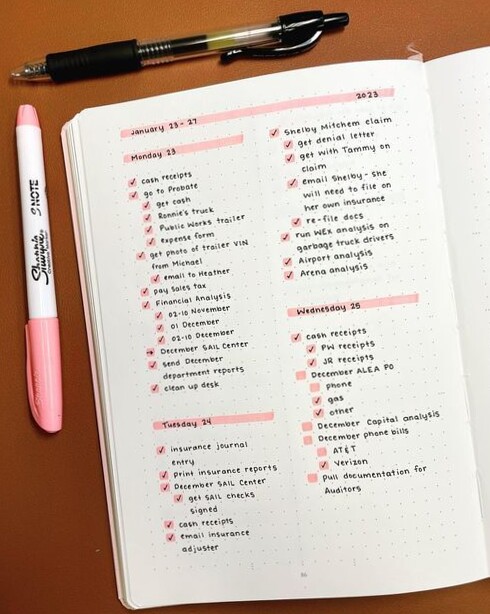 January 23-27
2023
Monday 23
cash receipts
go to Probate
get cash
Ronnie's truck
Public Works trailer
expense form
get photo of trailer VIN
from Michael
email to Heather
pay sales tax
Financial Analysis
02-10 November
01 December
02-10 December
December SAIL Center
send December
department reports
clean up desk
Tuesday 24
insurance journal
entry
print insurance reports
December SAIL Center
get SAIL checks
signed
cash receipts
email insurance
adjuster
Shelby Mitchem claim
get denial letter
get with Tammy on
claim
email Shelby - she
will need to file on
her own insurance
re-file docs
run WEX analysis on
garbage truck drivers
Airport analysis
Arena analysis
Wednesday 25
cash receipts
PW receipts
JR receipts
December ALEA PO
phone
gas
other
December Capital analysis
December phone bills
AT&T
Verizon
Pull documentation for
Auditors
Sharpie
S·NOTE